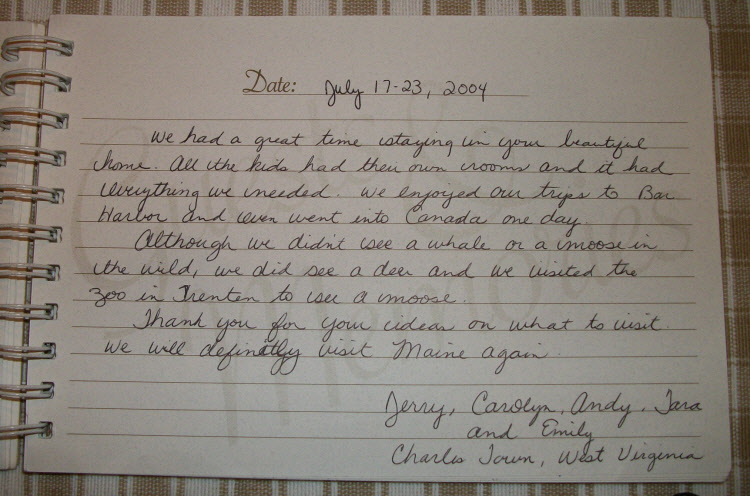 Date: July 17-23, 2004
We had a great time staying in your beautiful
home. All the kids had their own rooms and it had
everything we needed. We enjoyed our trips to Bar
Harbor and even went into Canada one day.
Although we didn't see a whale or a moose in
the wild, we did see a deer and we visited the
zoo in Trenten to see a moose.
Thank you for your ideas on what to visit.
We will definitly visit Maine again.
Jerry, Carolyn, Andy, Tara
and Emily
Charles Town, West Virginia